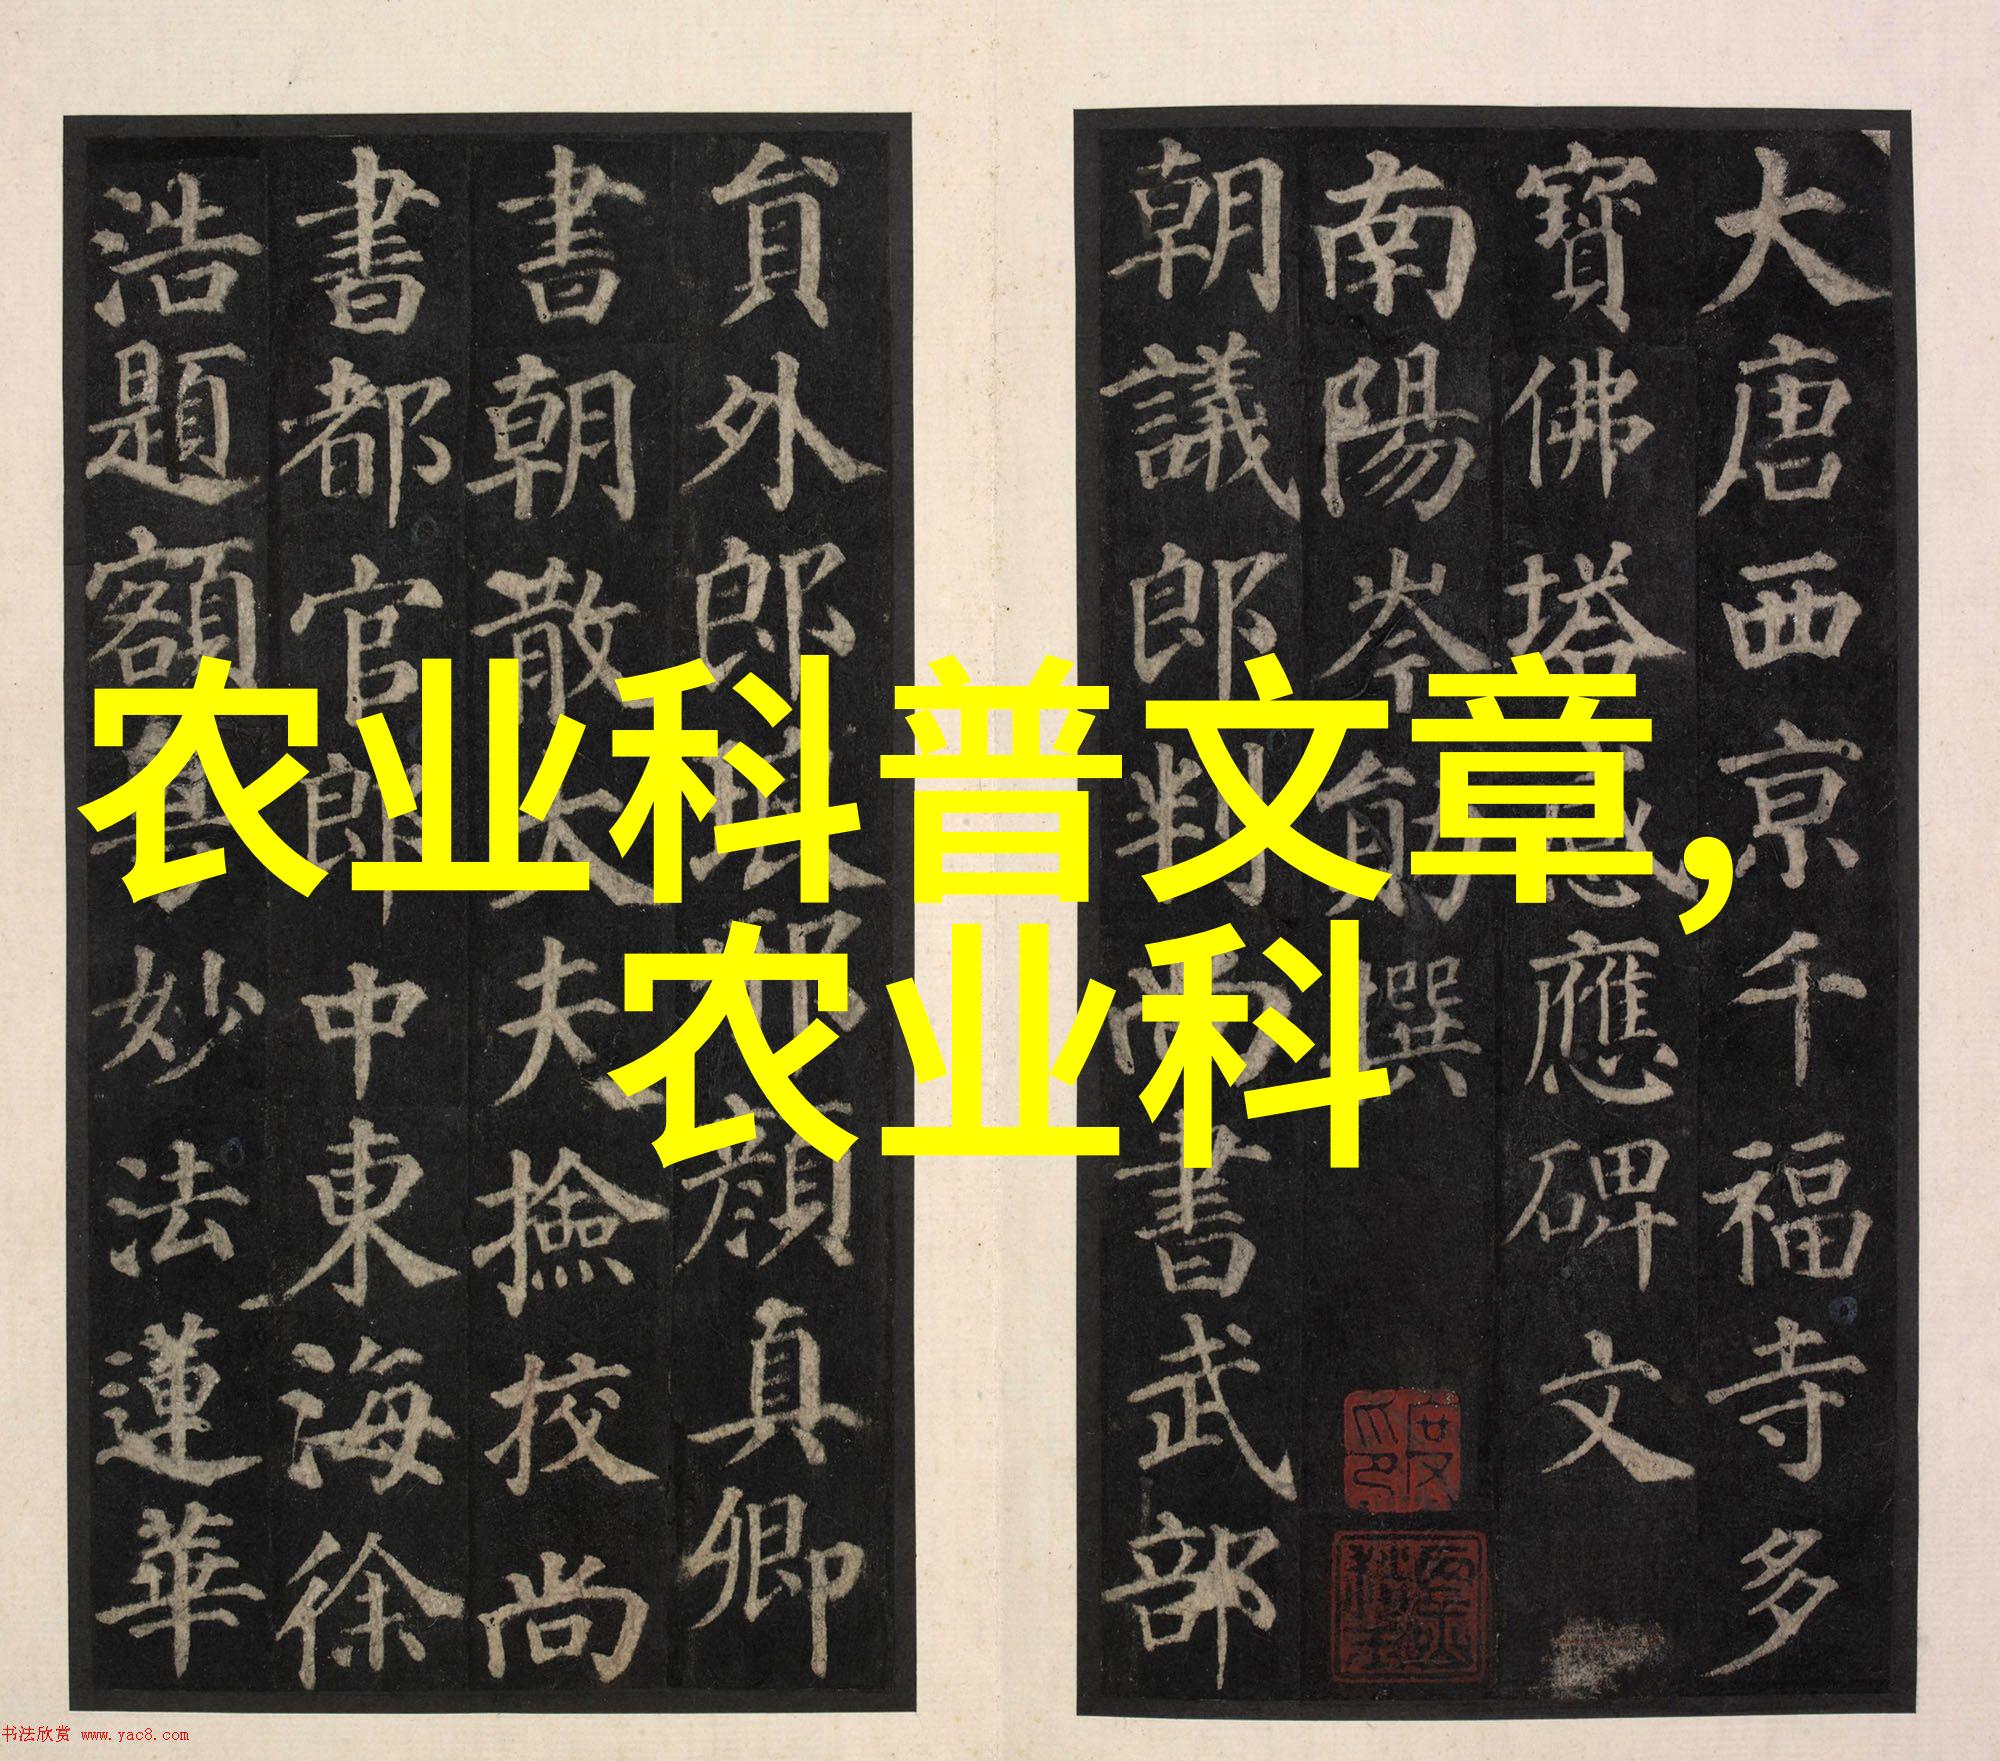 大唐西京千福寺多
寶佛塔感應碑文
南陽岑勛撰
朝議郎判尚書武部
貟外郎琅邪顔真卿
書朝散大夫撿校尚
書都官郎中東海徐
浩題額
妙法蓮華
农业科普文章,
农业科
书法欣赏 www.yac8.com